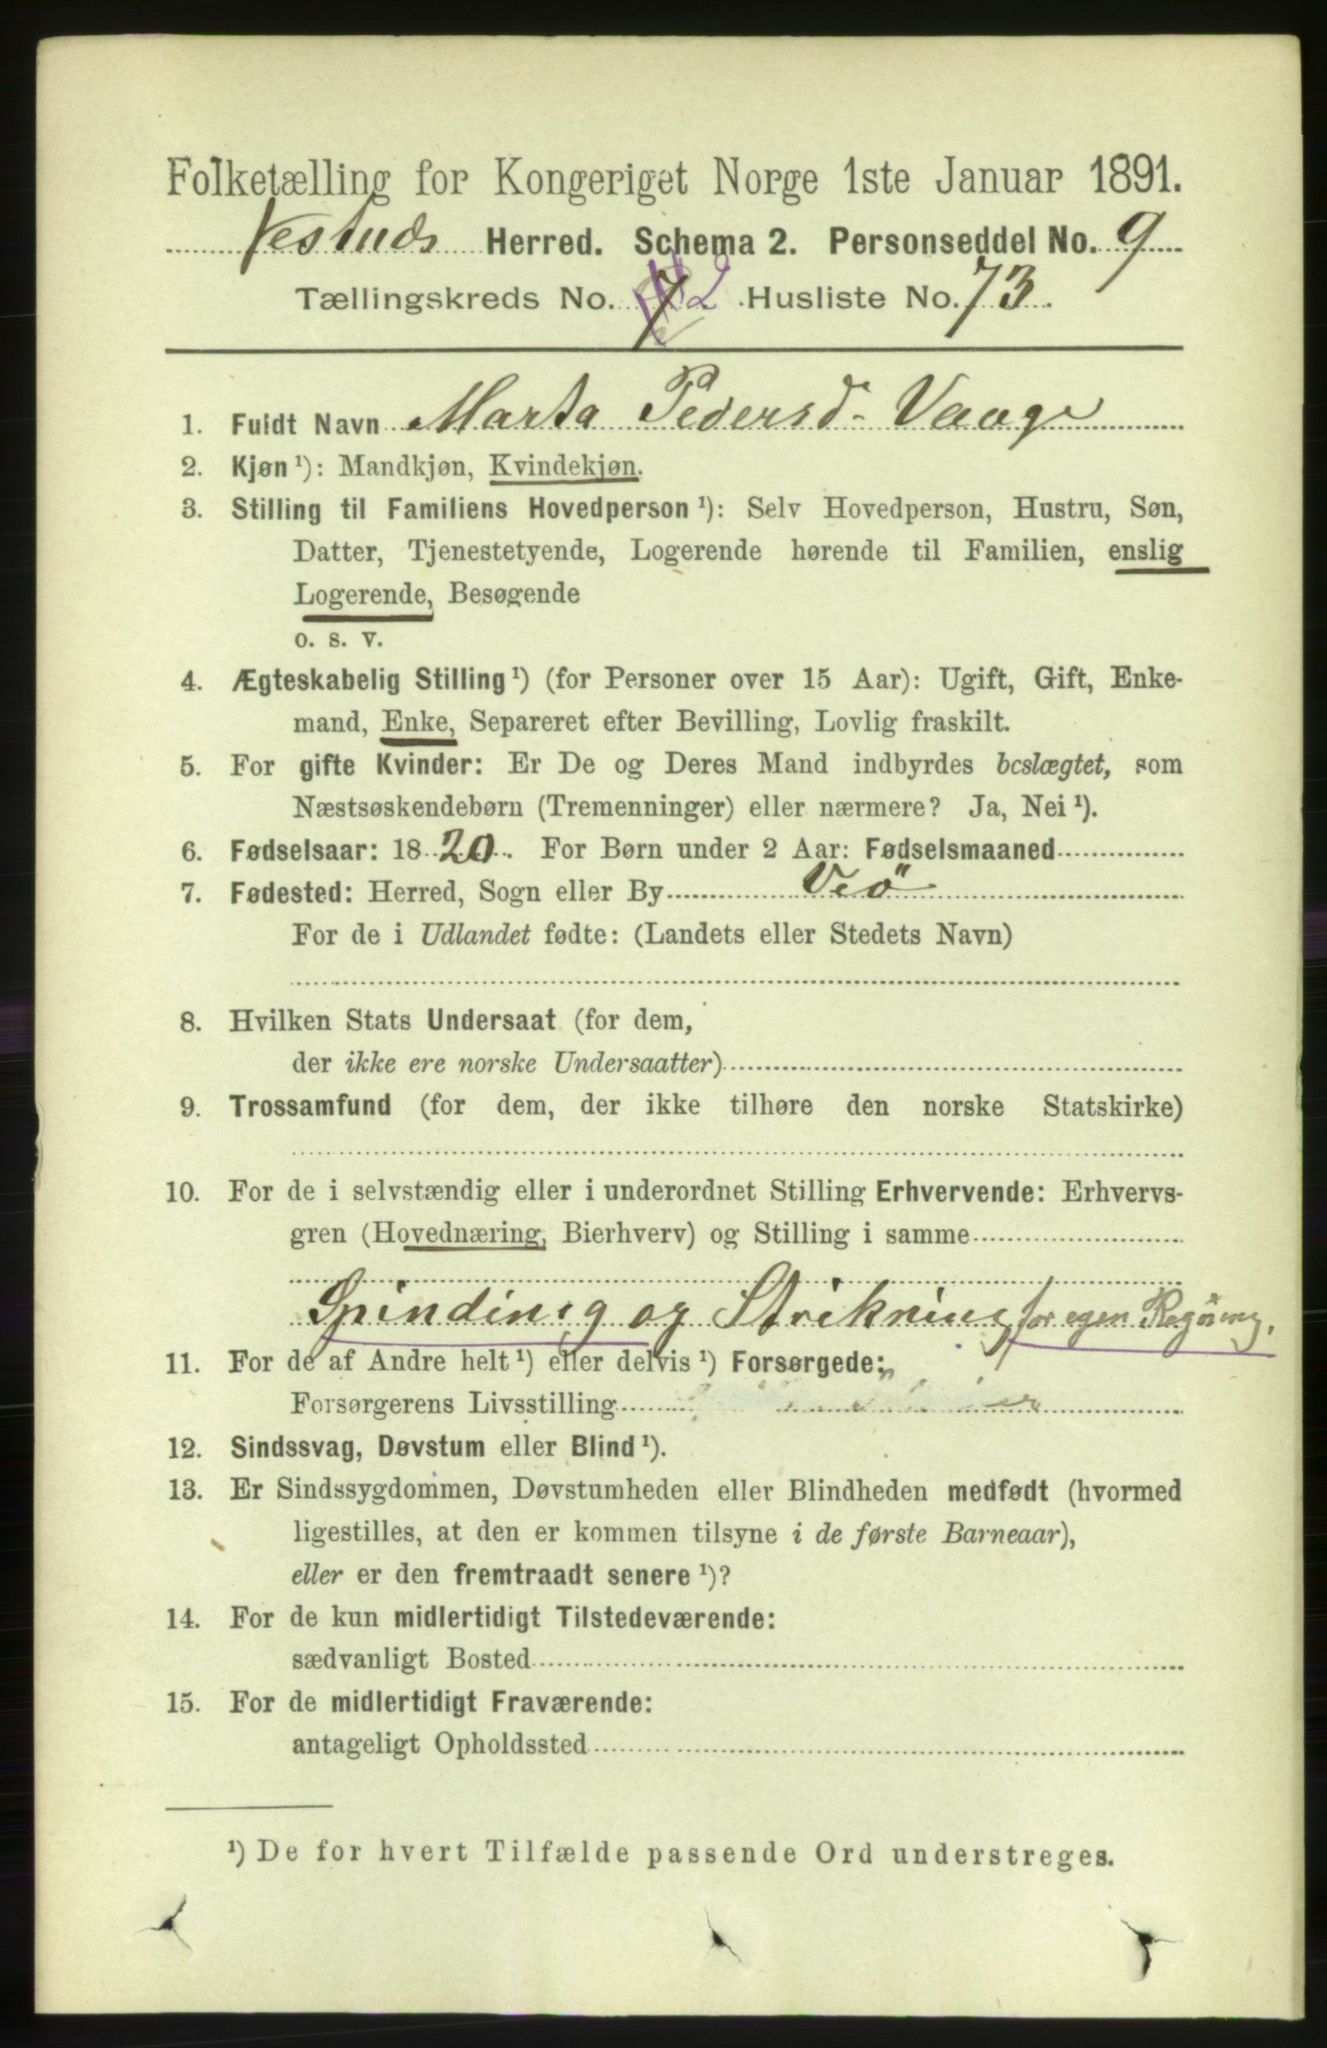 Folketælling for Kongeriget Norge 1ste Januar 1891.
Vestnds Herred. Schema 2. Personseddel No. 9
Tællingskreds No. 2 Husliste No. 73.
1. Fuldt Navn Marta Pedersd. Vaage
2. Kjøn ¹): Mandkjøn, Kvindekjøn.
3. Stilling til Familiens Hovedperson ¹): Selv Hovedperson, Hustru, Søn,
Datter, Tjenestetyende, Logerende hørende til Familien, enslig
Logerende, Besøgende
o. s. v.
4. Ægteskabelig Stilling ¹) (for Personer over 15 Aar): Ugift, Gift, Enke-
mand, Enke, Separeret efter Bevilling, Lovlig fraskilt.
5. For gifte Kvinder: Er De og Deres Mand indbyrdes beslægtet, som
Næstsøskendebørn (Tremenninger) eller nærmere? Ja, Nei ¹).
6. Fødselsaar: 1820. For Børn under 2 Aar: Fødselsmaaned
7. Fødested: Herred, Sogn eller By Veö
For de i Udlandet fødte: (Landets eller Stedets Navn)
8. Hvilken Stats Undersaat (for dem,
der ikke ere norske Undersaatter)
9. Trossamfund (for dem, der ikke tilhøre den norske Statskirke)
10. For de i selvstændig eller i underordnet Stilling Erhvervende: Erhvervs-
gren (Hovednæring, Bierhverv) og Stilling i samme
Spinding og Strikning for egen Regning.
11. For de af Andre helt ¹) eller delvis ¹) Forsørgede:
Forsørgerens Livsstilling
12. Sindssvag, Døvstum eller Blind ¹).
13. Er Sindssygdommen, Døvstumheden eller Blindheden medfødt (hvormed
ligestilles, at den er kommen tilsyne i de første Barneaar),
eller er den fremtraadt senere ¹)?
14. For de kun midlertidigt Tilstedeværende:
sædvanligt Bosted
15. For de midlertidigt Fraværende:
antageligt Opholdssted
¹) De for hvert Tilfælde passende Ord understreges.